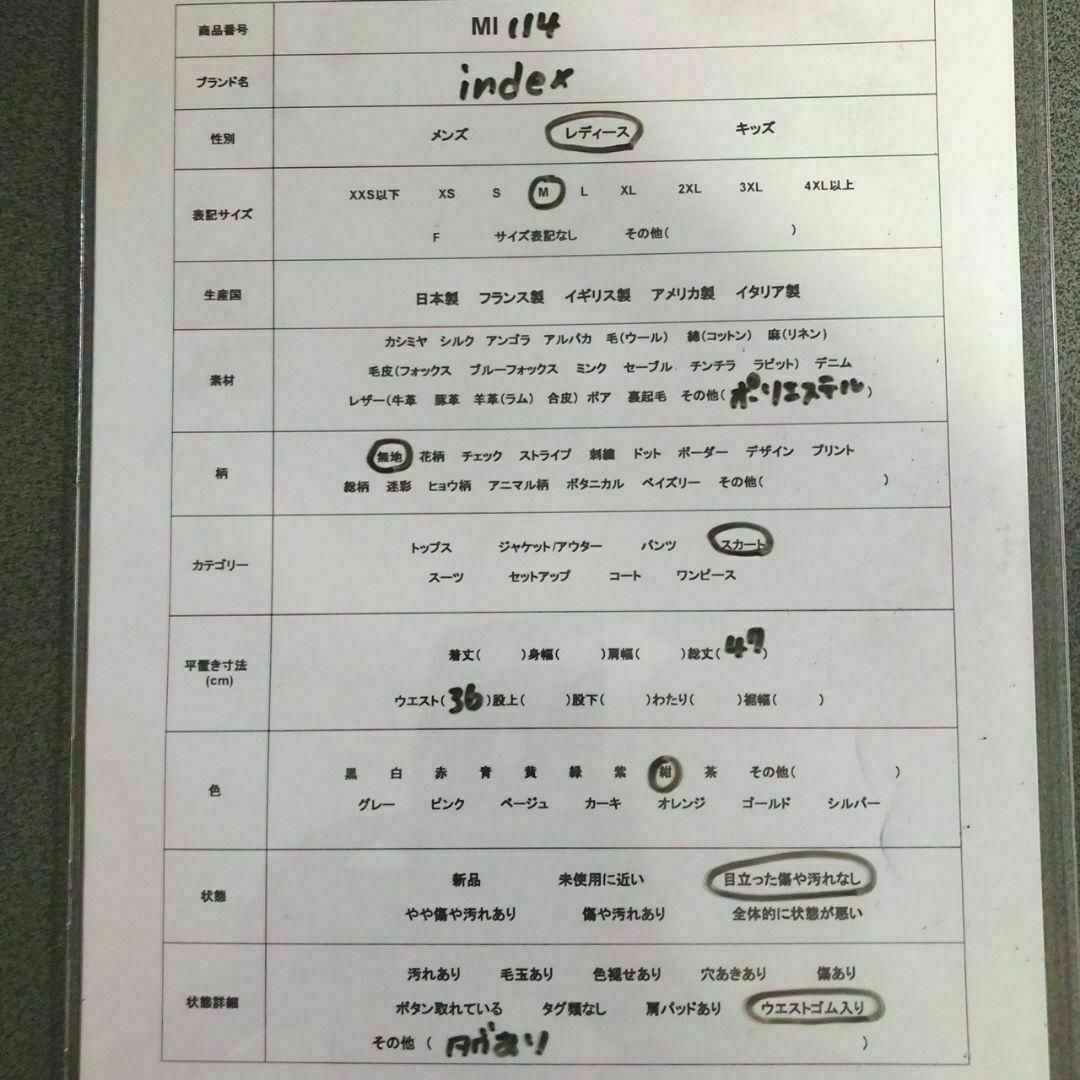 商品番号 MI 114
ブランド名 index
性別 メンズ レディース キッズ
表記サイズ XXS以下 XS S M L XL 2XL 3XL 4XL以上
F サイズ表記なし その他( )
生産国 日本製 フランス製 イギリス製 アメリカ製 イタリア製
素材 カシミヤ シルク アンゴラ アルパカ 毛(ウール) 綿(コットン) 麻(リネン)
毛皮(フォックス ブルーフォックス ミンク セーブル チンチラ ラビット) デニム
レザー(牛革 豚革 羊革(ラム) 合皮) ボア 裏起毛 その他(ポリエステル)
柄 無地 花柄 チェック ストライプ 刺繍 ドット ボーダー デザイン プリント
総柄 迷彩 ヒョウ柄 アニマル柄 ボタニカル ペイズリー その他( )
カテゴリー トップス ジャケット/アウター パンツ スカート
スーツ セットアップ コート ワンピース
平置き寸法
(cm)
着丈( )身幅( )肩幅( )総丈(47)
ウエスト(36)股上( )股下( )わたり( )裾幅( )
色 黒 白 赤 青 黄 緑 紫 紺 茶 その他( )
グレー ピンク ベージュ カーキ オレンジ ゴールド シルバー
状態 新品 未使用に近い 目立った傷や汚れなし
やや傷や汚れあり 傷や汚れあり 全体的に状態が悪い
状態詳細 汚れあり 毛玉あり 色褪せあり 穴あきあり 傷あり
ボタン取れている タグ類なし 肩パッドあり ウエストゴム入り
その他 ( タグあり )